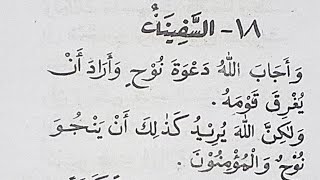 ١٨- السَّفِينَةُ
وَأَجَابَ اللهُ دَعْوَةَ نُوْحٍ وَأَرَادَ أَنْ
يُغْرِقَ قَوْمَهُ .
وَلٰكِنَّ اللهَ يُرِيْدُ كَذٰلِكَ أَنْ يَنْجُوَ
نُوْحٌ وَالْمُؤْمِنُوْنَ .